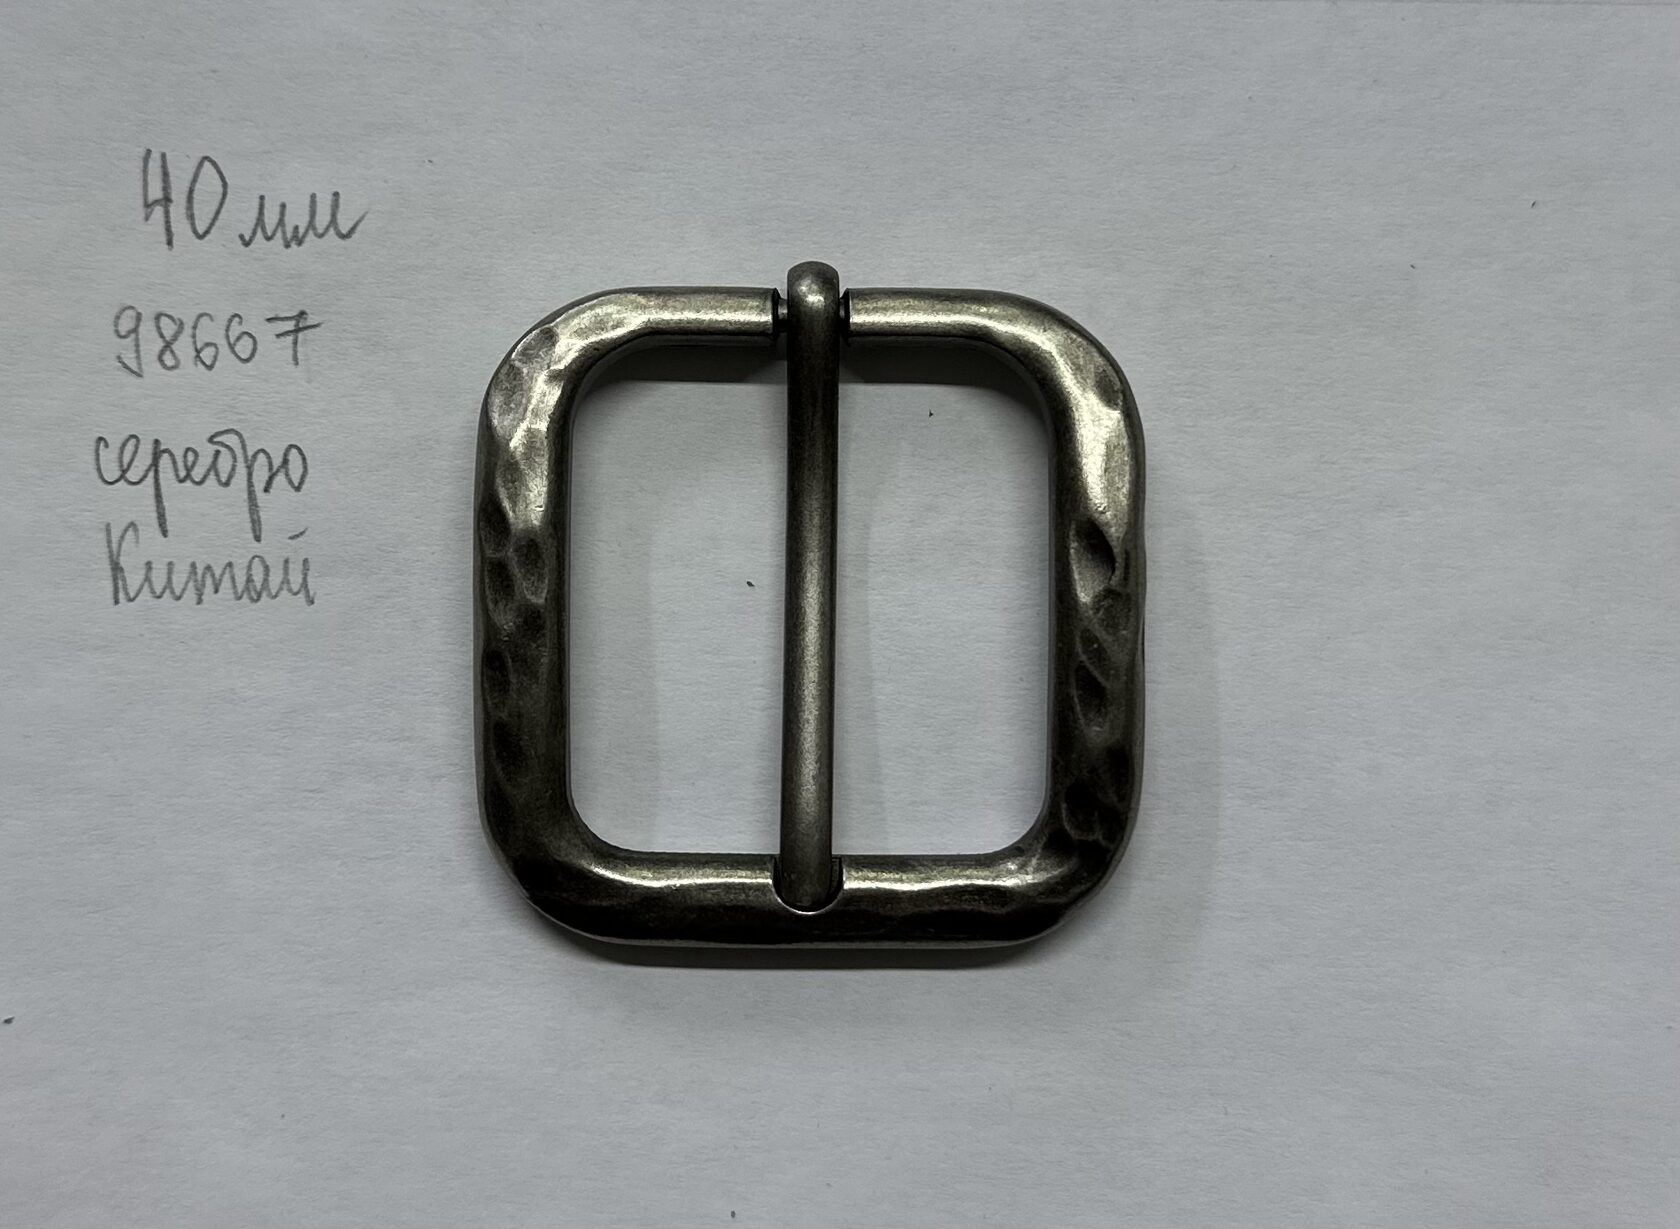 40 мм
98667
серебро
Китай